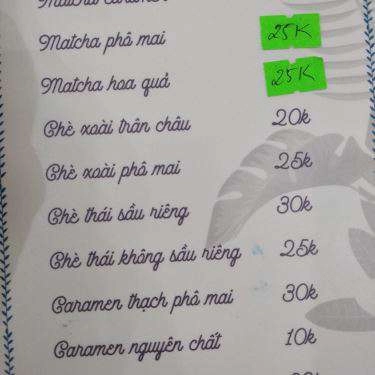 Matcha caramen
Matcha phô mai 25K
Matcha hoa quả 25K
Chè xoài trân châu 20k
Chè xoài phô mai 25k
Chè thái sầu riêng 30k
Chè thái không sầu riêng 25k
Caramen thạch phô mai 30k
Caramen nguyên chất 10k